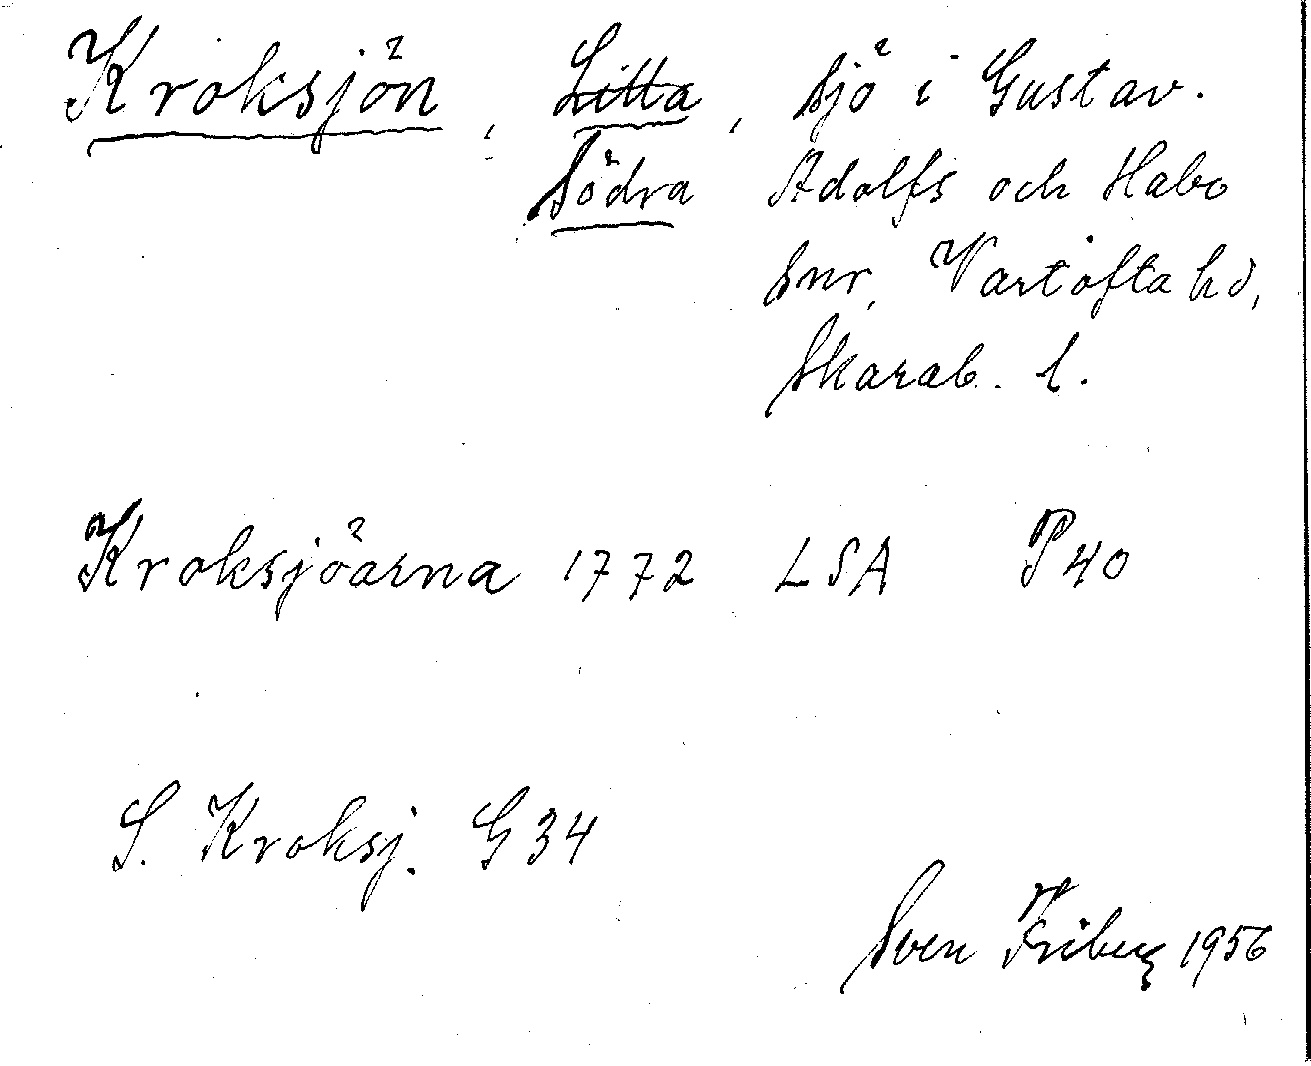 Kroksjön, Litta, sjö i Gustav.
Södra Adolfs och Habo
snr, Vartofta hd,
Skarab. l.
Kroksjöarna 1772 LSA P40
S. Kroksj. G34
Sven Friberg 1956